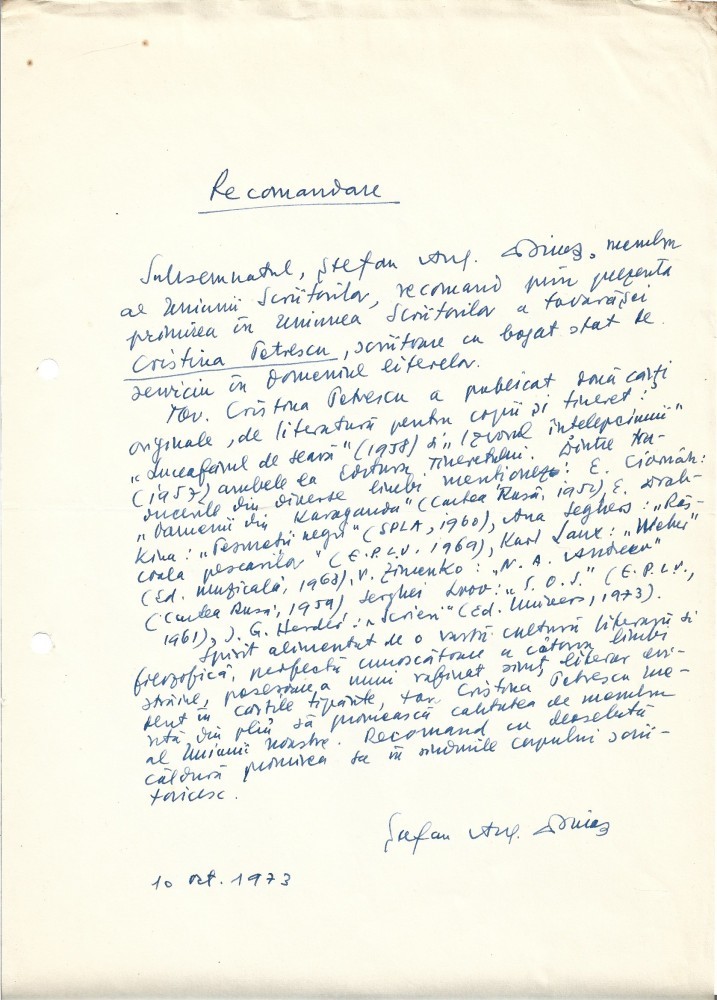 Recomandare
Subsemnatul, Ștefan Aug. Doinaș, membru
al Uniunii Scriitorilor, recomand prin prezenta
primirea în Uniunea Scriitorilor a tovarășei
Cristina Petrescu, scriitoare cu bogat stat de
serviciu în domeniul literelor.
Tov. Cristina Petrescu a publicat două cărți
originale, de literatură pentru copii și tineret:
„Luceafărul de seară" (1958) și „Izvorul înțelepciunii"
(1957) ambele la Editura Tineretului. Dintre tra-
ducerile din diverse limbi menționez: E.
„Oamenii din Karaganda" (Cartea Rusă, 1952) E. Drab-
kina: „Pesmeți negri" (SPLA, 1960), Ana Seghers: „Răs-
coala pescarilor" (E.P.L.U. 1969), Karl Laux: „Weber"
(Ed. muzicală, 1968), V. Zimenko: „N. A. Andreev"
(Cartea Rusă, 1959) Serghei Lvov: „S.O.S." (E.P.L.U.,
1961), J. G. Herder: „Scrieri" (Ed. Univers, 1973).
Spirit alimentat de o vastă cultură literară și
filozofică, perfectă cunoscătoare a câtorva limbi
străine, posesoarea unui rafinat simț literar evi-
dent în cărțile tipărite, tov. Cristina Petrescu me-
rită din plin să primească calitatea de membru
al Uniunii noastre. Recomand cu deosebită
căldură primirea sa în rândurile corpului scrii-
toricesc.
Ștefan Aug. Doinaș
10 oct. 1973